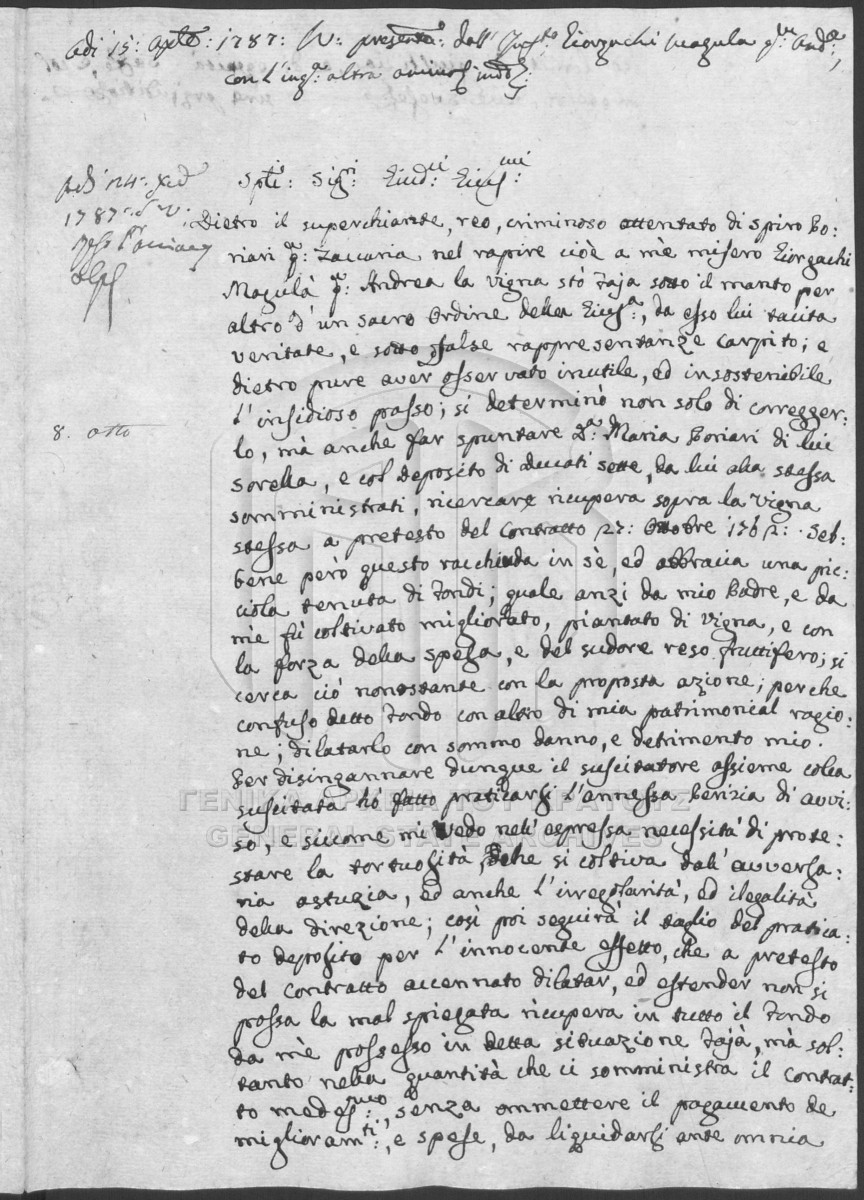 Adi 15: Aptē: 1787: S.V: presentā: dall' Infto Giorgachi Magula qm Andā,
con l'ingā altra animo
Spti: Sigri: Giudci Eccmi:
Adi 24: xbd
1787: S.V.
Dietro il superchiante, reo, criminoso attentato di Spiro Bo:
riari qm: Zaccaria nel rapire cioè a mè misero Giorgachi
Magulà qm: Andrea la vigna stò Zaja sotto il manto per
altro d'un sacro Ordine della Giusa, da esso lui tacita
veritate, e sotto false rappresentanze carpito; e
dietro pure aver osservato inutile, ed insostenibile
l'insidioso passo; si determinò non solo di corregger:
8. otto
lo, mà anche far spuntare Da: Maria Boriari di lui
sorella, e col deposito di Ducati sette, da lui alla stessa
somministrati, ricercare ricupera sopra la vigna
stessa a pretesto del contratto 27: Ottobre 1762: Seb:
bene però questo racchiuda in sè, ed abbraccia una pic:
ciola tenuta di Fondi; quale anzi da mio Padre, e da
mè fù coltivato migliorato, piantato di vigna, e con
la forza della spesa, e del sudore reso fruttifero; si
cerca ciò nonostante con la proposta azione; perche
confuso detto Fondo con altro di mia patrimonial ragio:
ne; dilatarlo con sommo danno, e detrimento mio.
Per disingannare dunque il suscitatore assieme colla
suscitata hò fatto praticarsi l'annessa Perizia di avvi:
so, e siccome mi vedo nell'espressa necessità di prote:
stare la tortuosità, che si coltiva dall'avversa:
ria astuzia, ed anche l'irregolarità, ed ilegalità
della direzione; così poi seguirà il taglio del pratica:
to deposito per l'innocente effetto, che a pretesto
del contratto accennato dilatar, ed estender non si
possa la mal spiegata ricupera in tutto il Fondo
da mè possesso in detta situazione Zajà, mà sol:
tanto nella quantità che ci somministra il contrat:
to medesmo, senza ommettere il pagamento de
miglioramti:, e spese, da liquidarsi ante omnia
ΓΕΝΙΚΑ ΑΡΧΕΙΑ ΤΟΥ ΚΡΑΤΟΥΣ
GENERAL STATE ARCHIVES